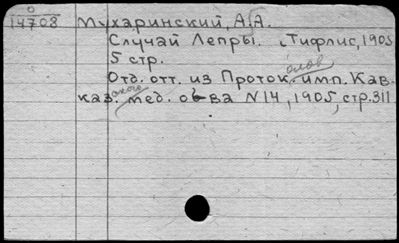 0
14708 Мухаринский, А.А.
Случай Лепры. Тифлис, 1905
5 стр.
Отд. отт. из Проток. имп. Кав.
каз. мед. о-ва N14, 1905, стр. 311